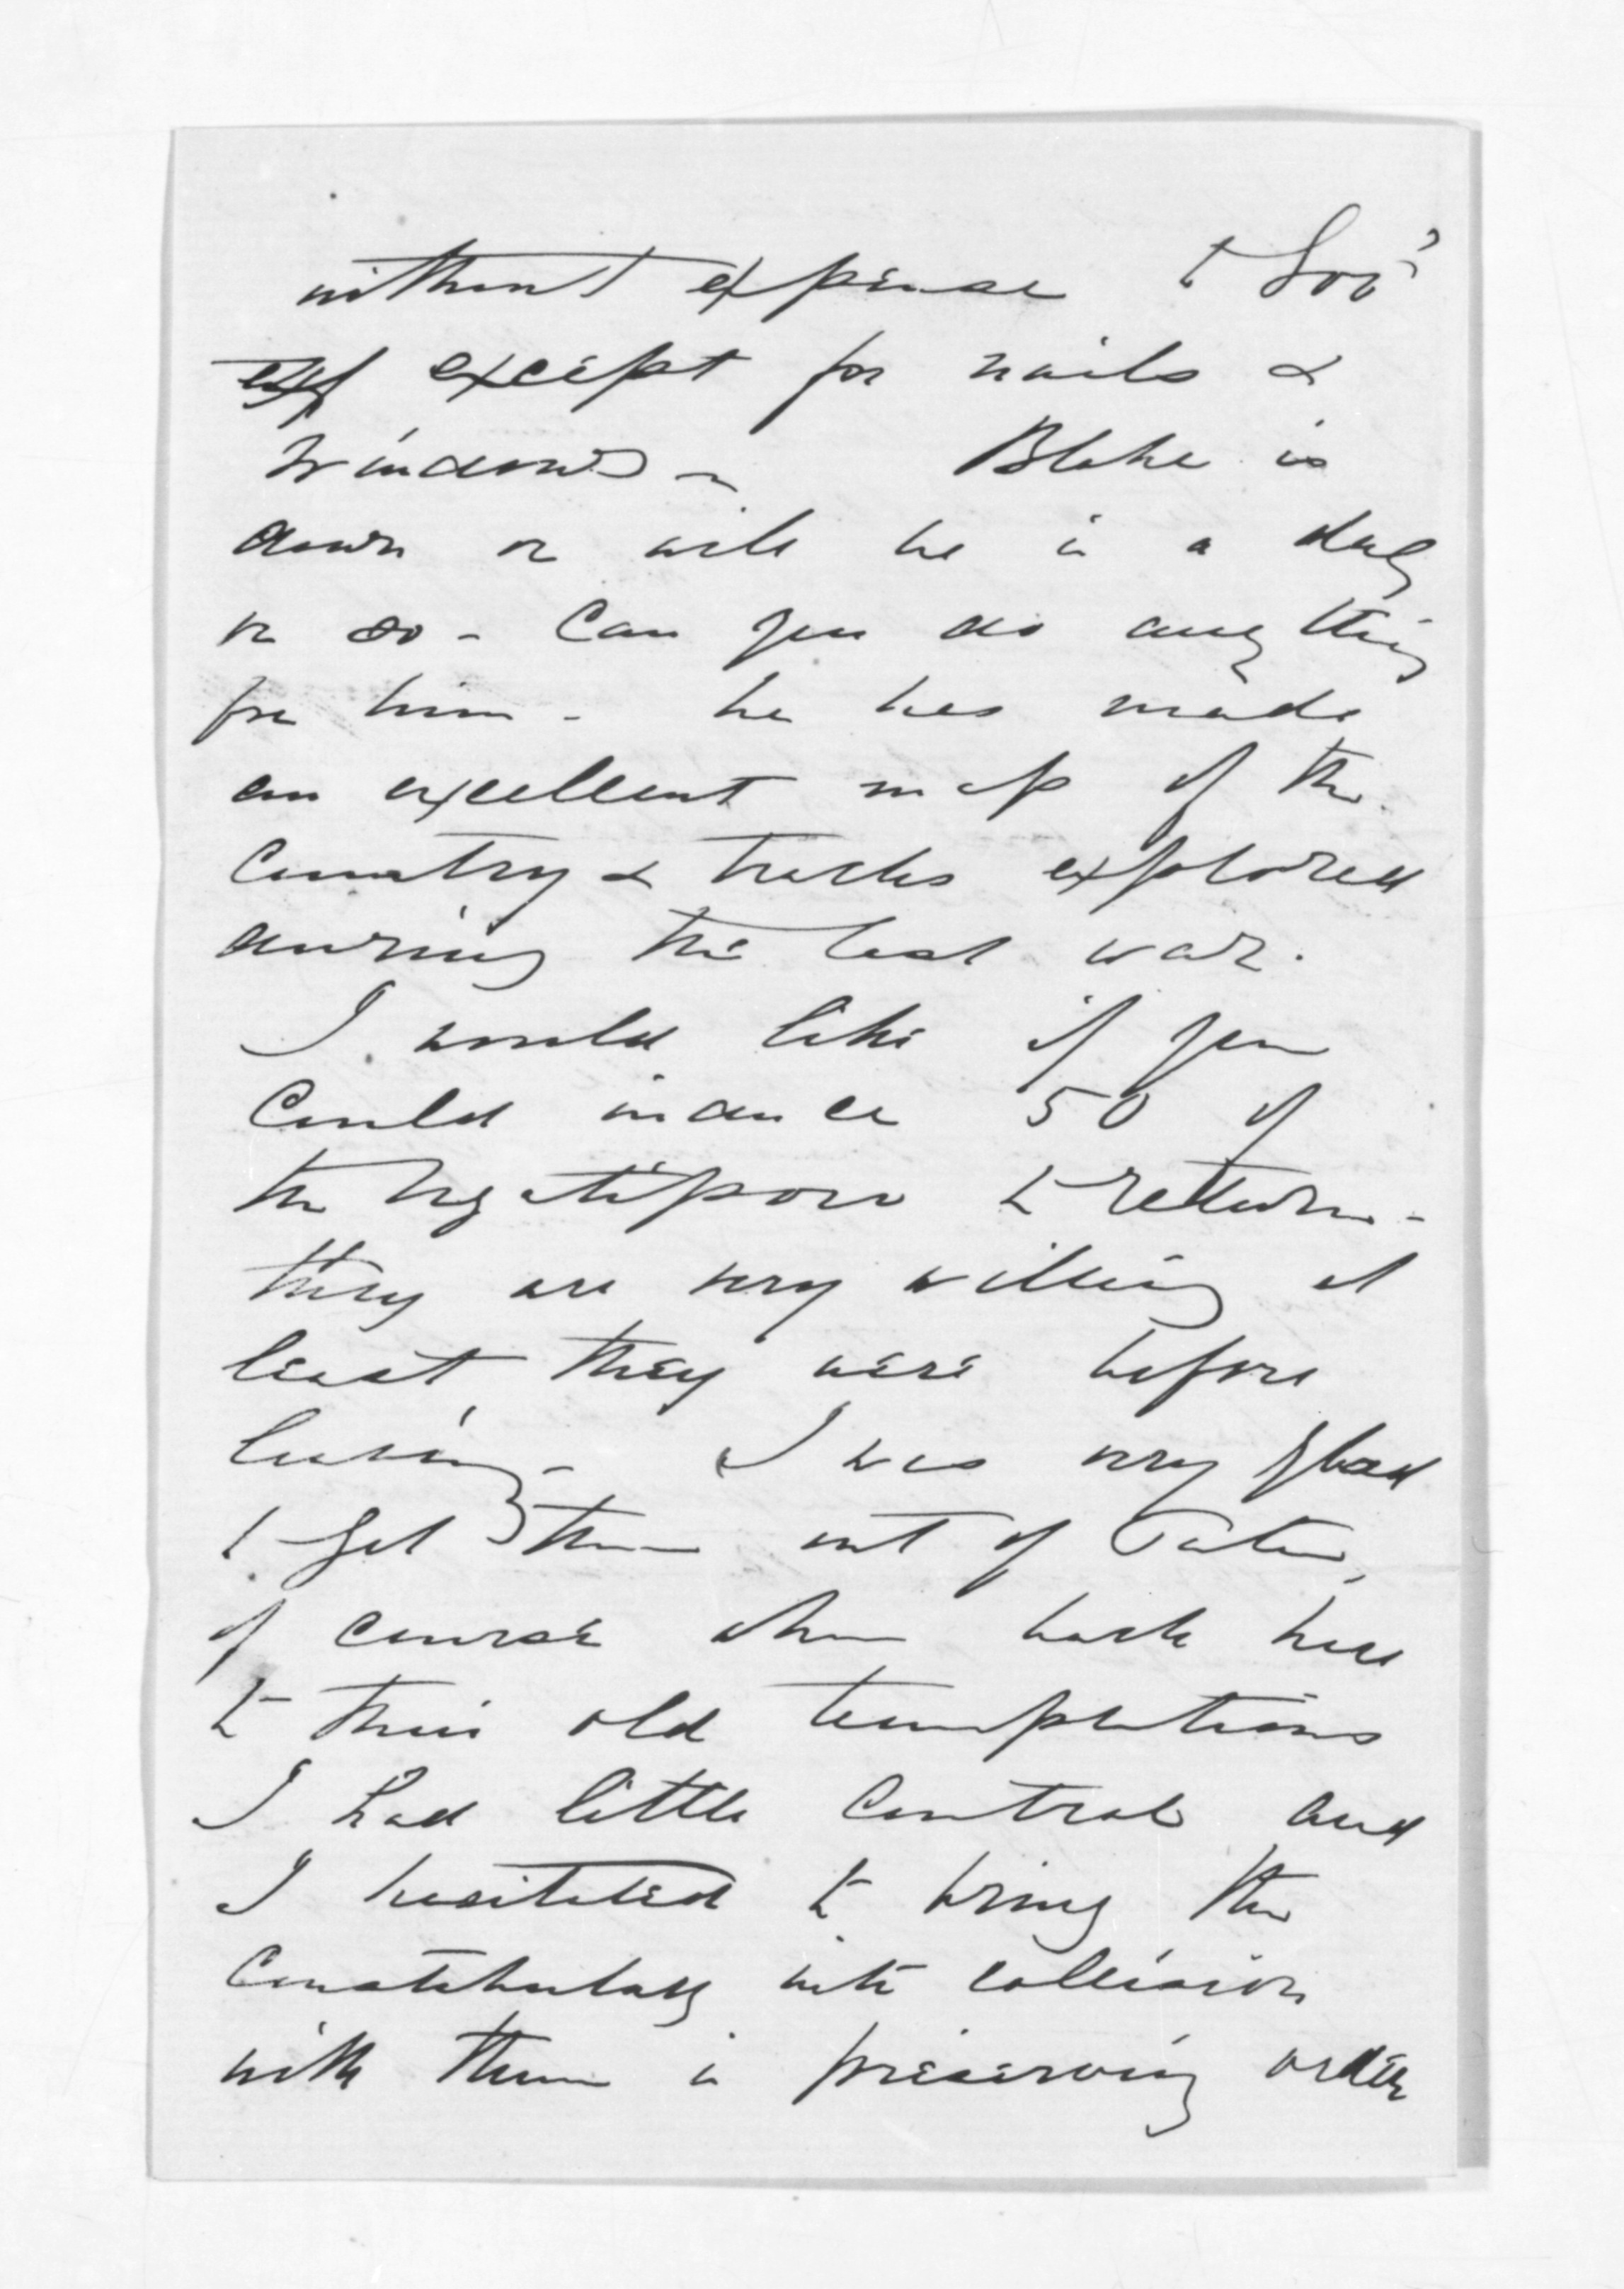 without expense to Gov^t
exp except for nails &
windows - Blake is
down or will be in a day
or so - Can you do anything
for him - he has made
an excellent map of the
Country & tracks explored
during the last war.
I would like if you
Could induce 50 of
the Ngatiporou to return -
they are very willing at
least they were before
leaving - I was very glad
to get them out of Patea,
of course when back here
to their old temptations
I had little Control and
I hesitated to bring the
Constabulary into collision
with them in preserving order